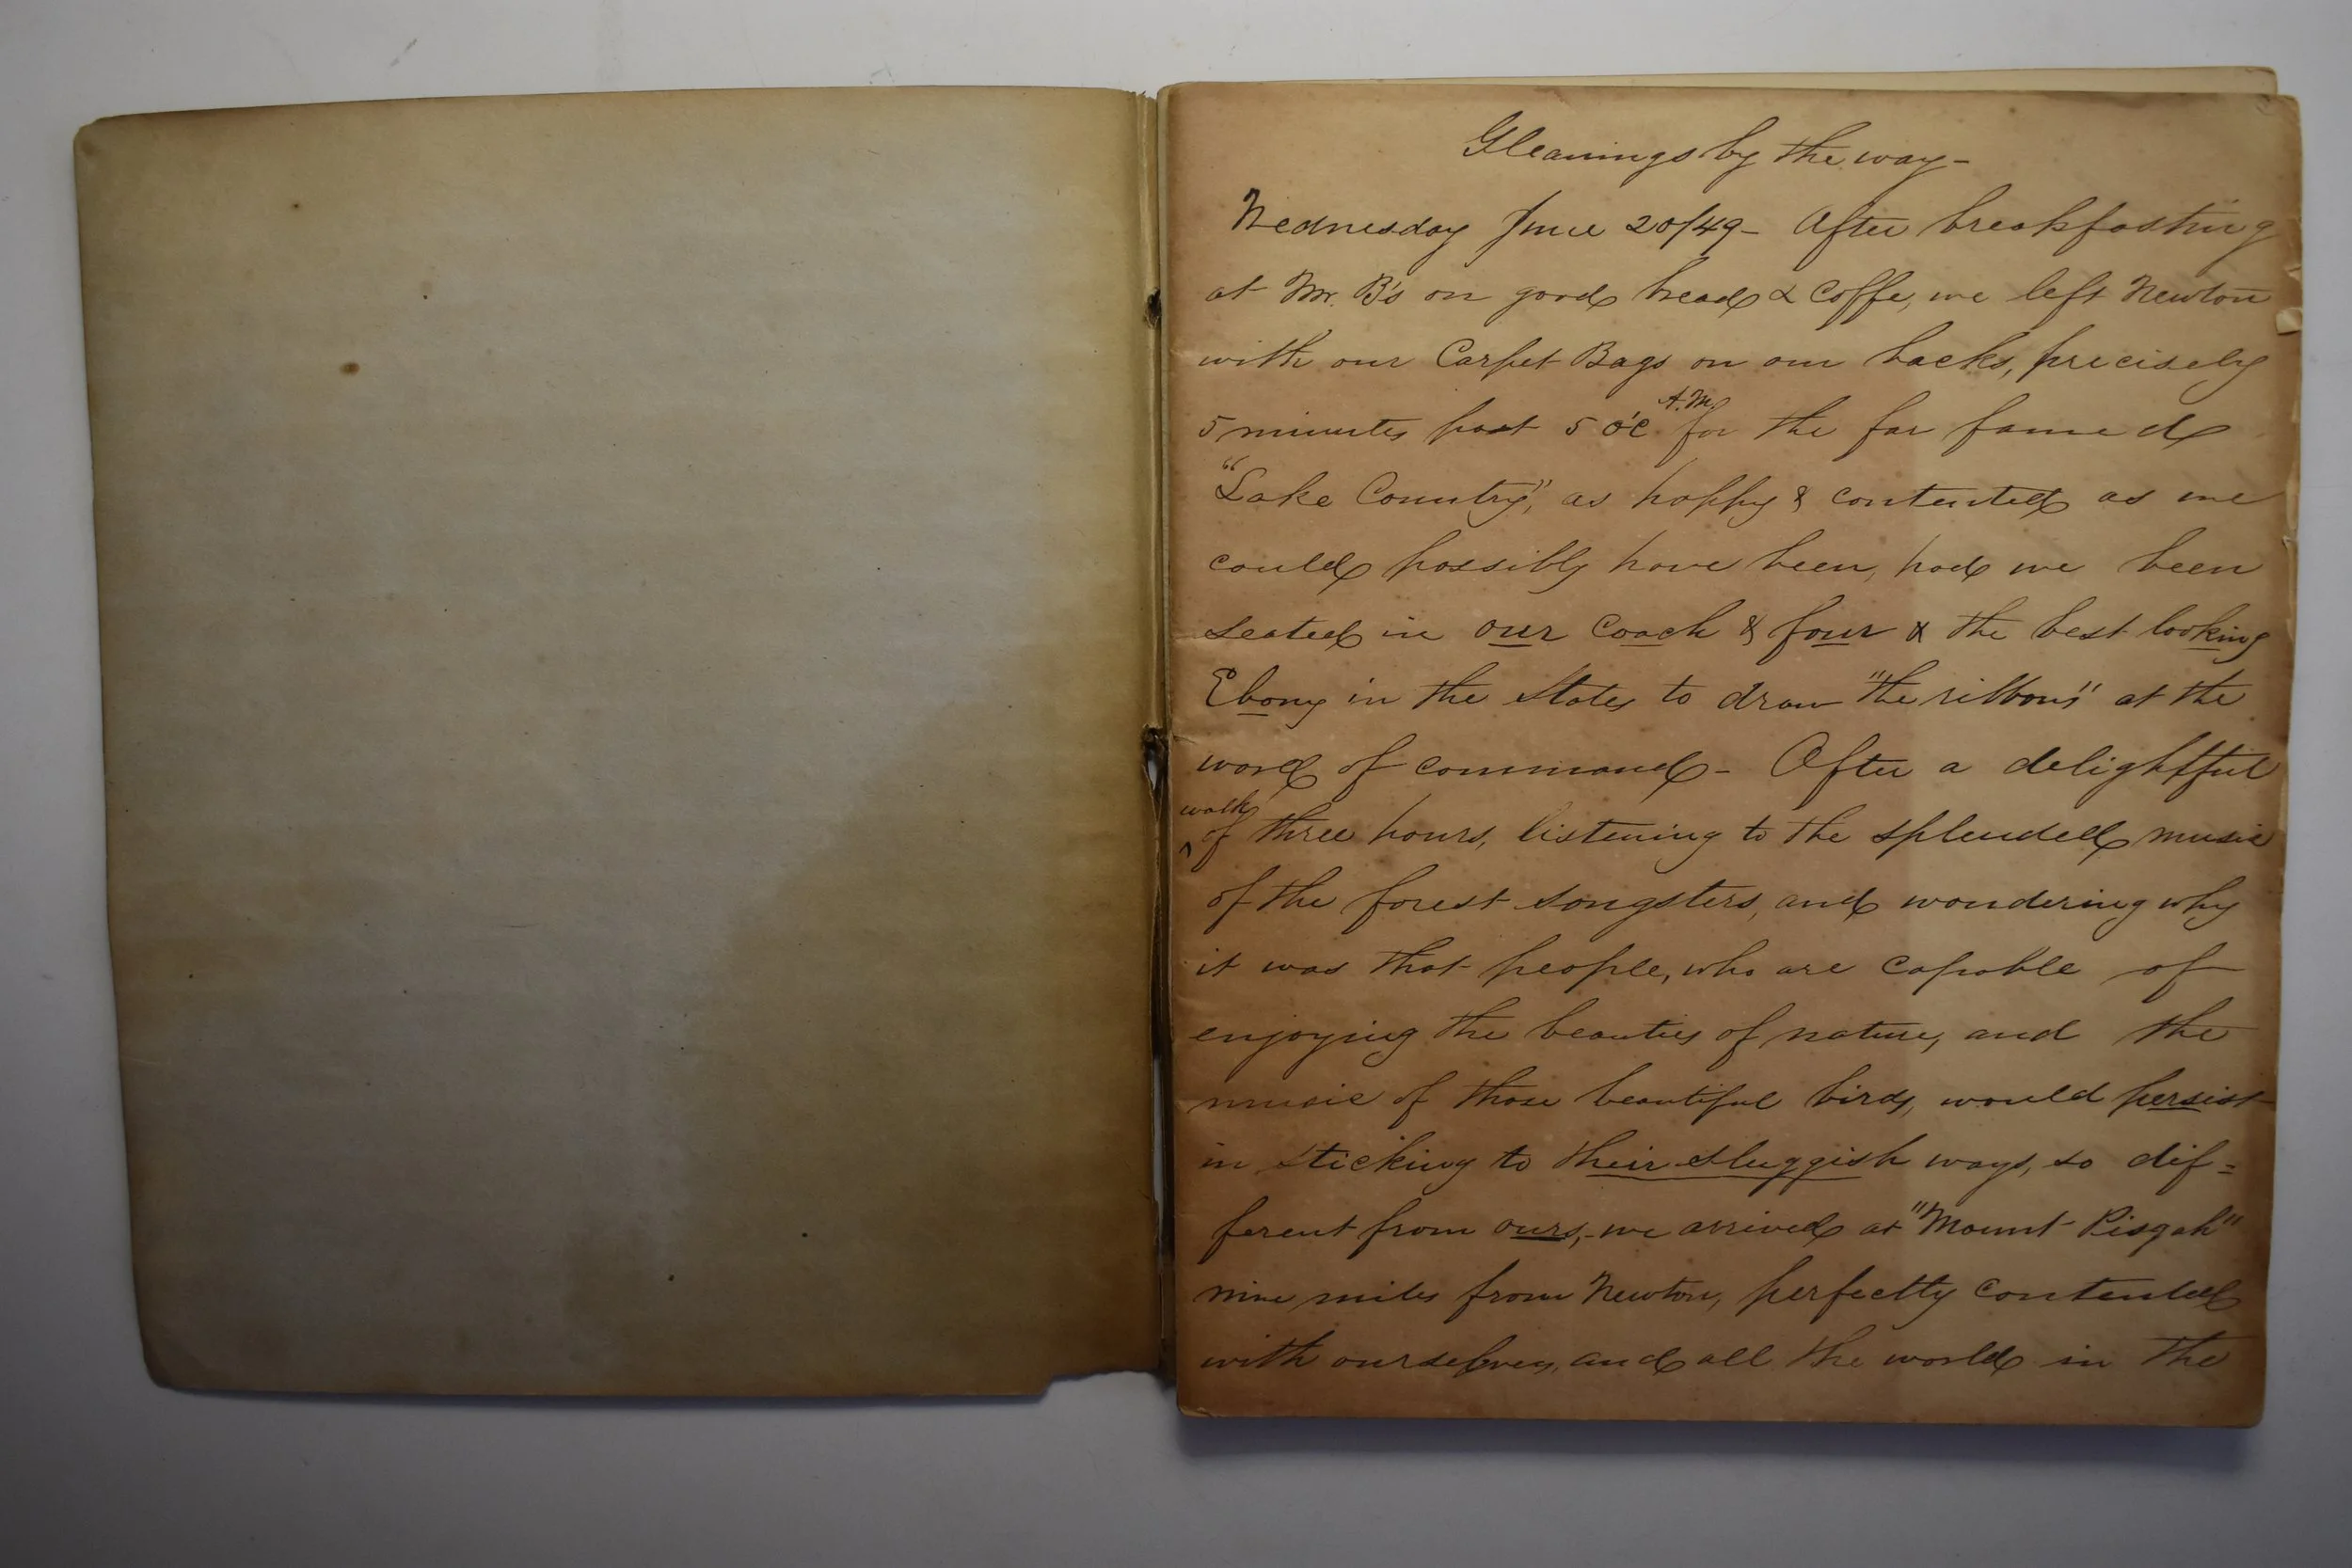 Gleanings by the way-
Wednesday June 20/49- After breakfasting
at Mr. B's on good bread & Coffe, we left Newton
with our Carpet Bags on our backs, precisely
5 minutes past 5 o'c A.M. for the far famed
"Lake Country", as happy & contented as we
could possibly have been, had we been
seated in our coach & four & the best looking
Ebony in the States to draw "the ribbons" at the
word of command- After a delightful
walk of three hours, listening to the splended music
of the forest songsters, and wondering why
it was that people, who are capable of
enjoying the beauties of nature, and the
music of those beautiful birds, would persist
in sticking to their sluggish ways, so dif=
ferent from ours,- we arrived at "Mount Pisgah"
nine miles from Newton, perfectly contented
with ourselves, and all the world in the